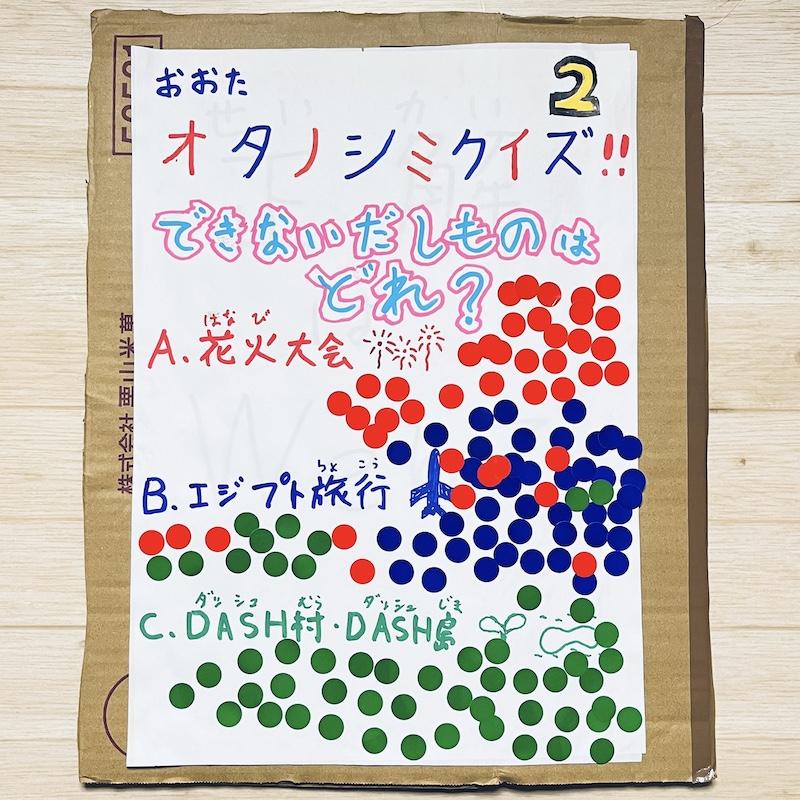 おおた
2
オタノシミクイズ!!
できないだしものは
どれ?
はなび
A. 花火大会
りょこう
B. エジプト旅行
ダッシュ むら ダッシュ じま
C. DASH村・DASH島
株式会社 栗山米菓